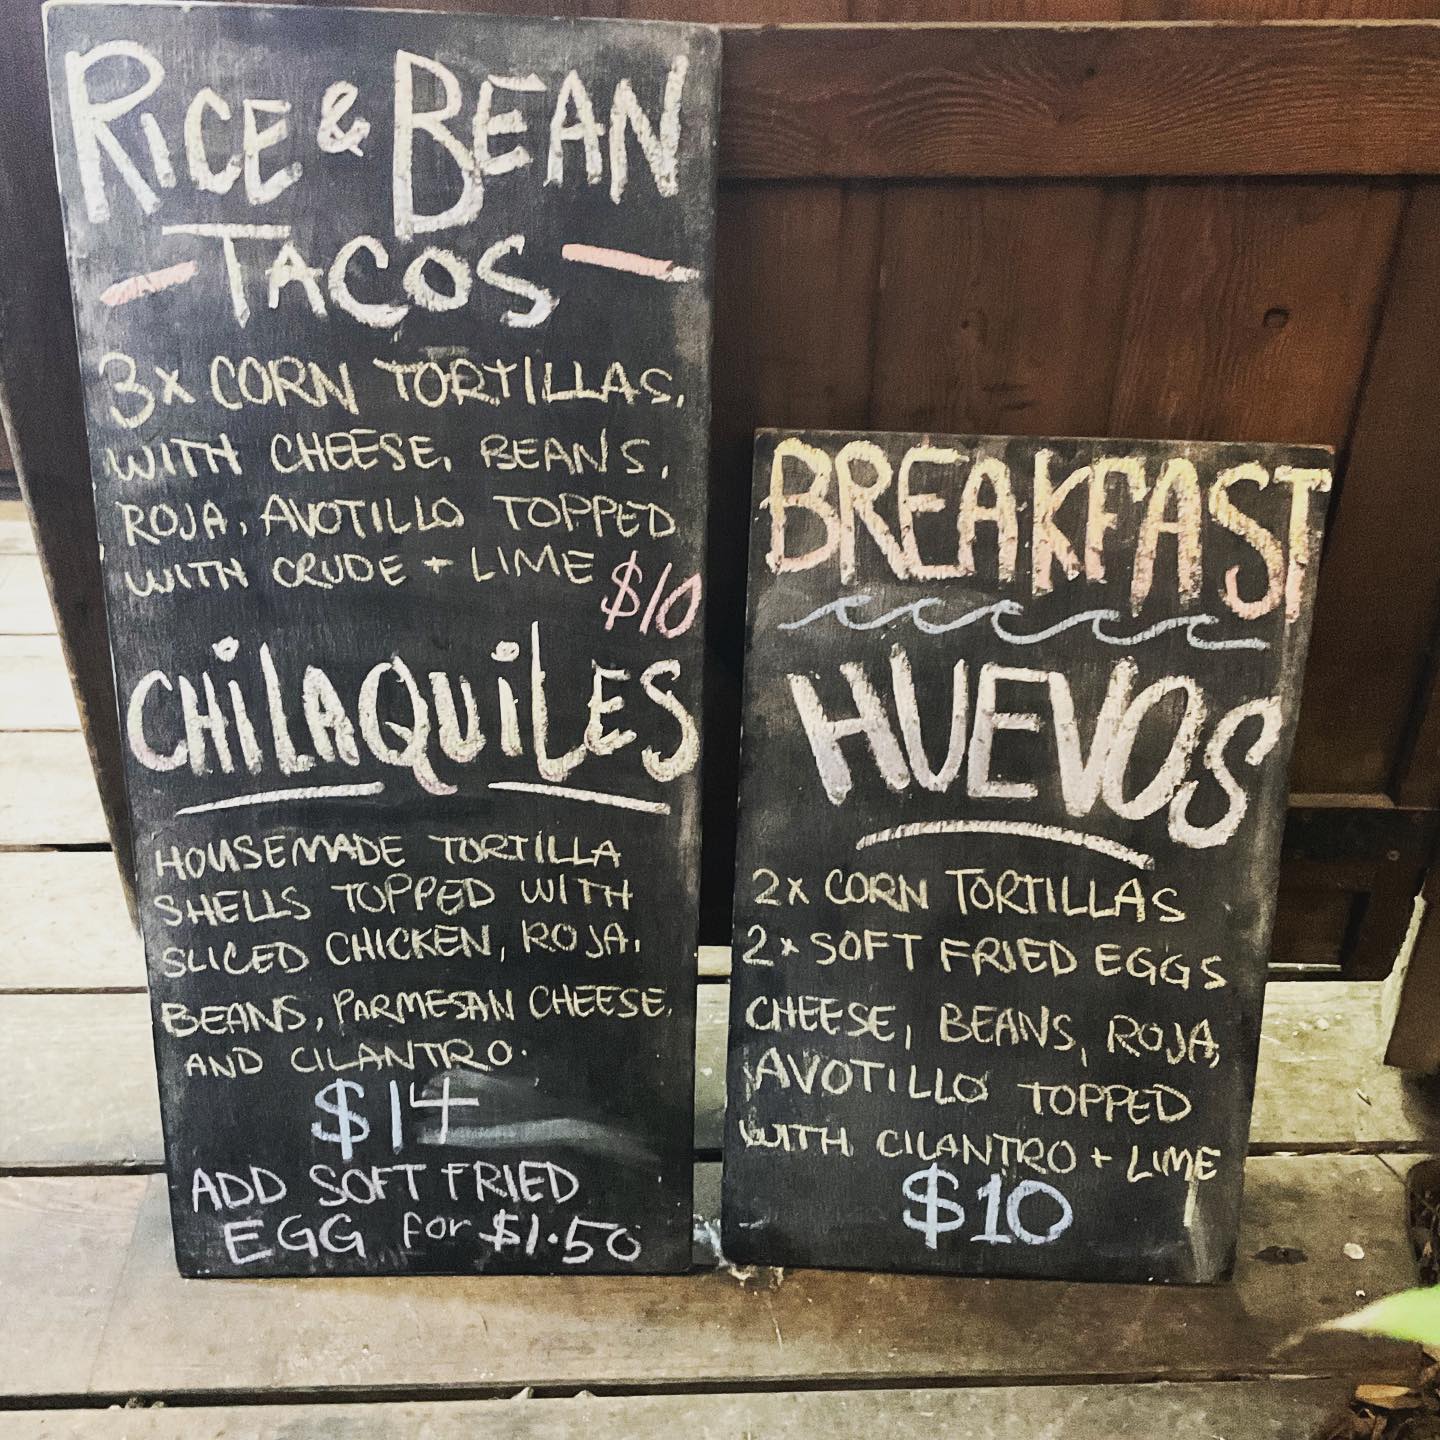 RICE & BEAN
TACOS
3x CORN TORTILLAS,
WITH CHEESE, BEANS,
ROJA, AVOTILLO TOPPED
WITH CRUDE + LIME $10
CHiLAQUiLES
HOUSEMADE TORTILLA
SHELLS TOPPED WITH
SLICED CHICKEN, ROJA,
BEANS, PARMESAN CHEESE,
AND CILANTRO.
$14
ADD SOFT FRIED
EGG for $1.50
BREAKFAST
HUEVOS
2x CORN TORTILLAS
2x SOFT FRIED EGGS
CHEESE, BEANS, ROJA,
AVOTILLO TOPPED
WITH CILANTRO + LIME
$10